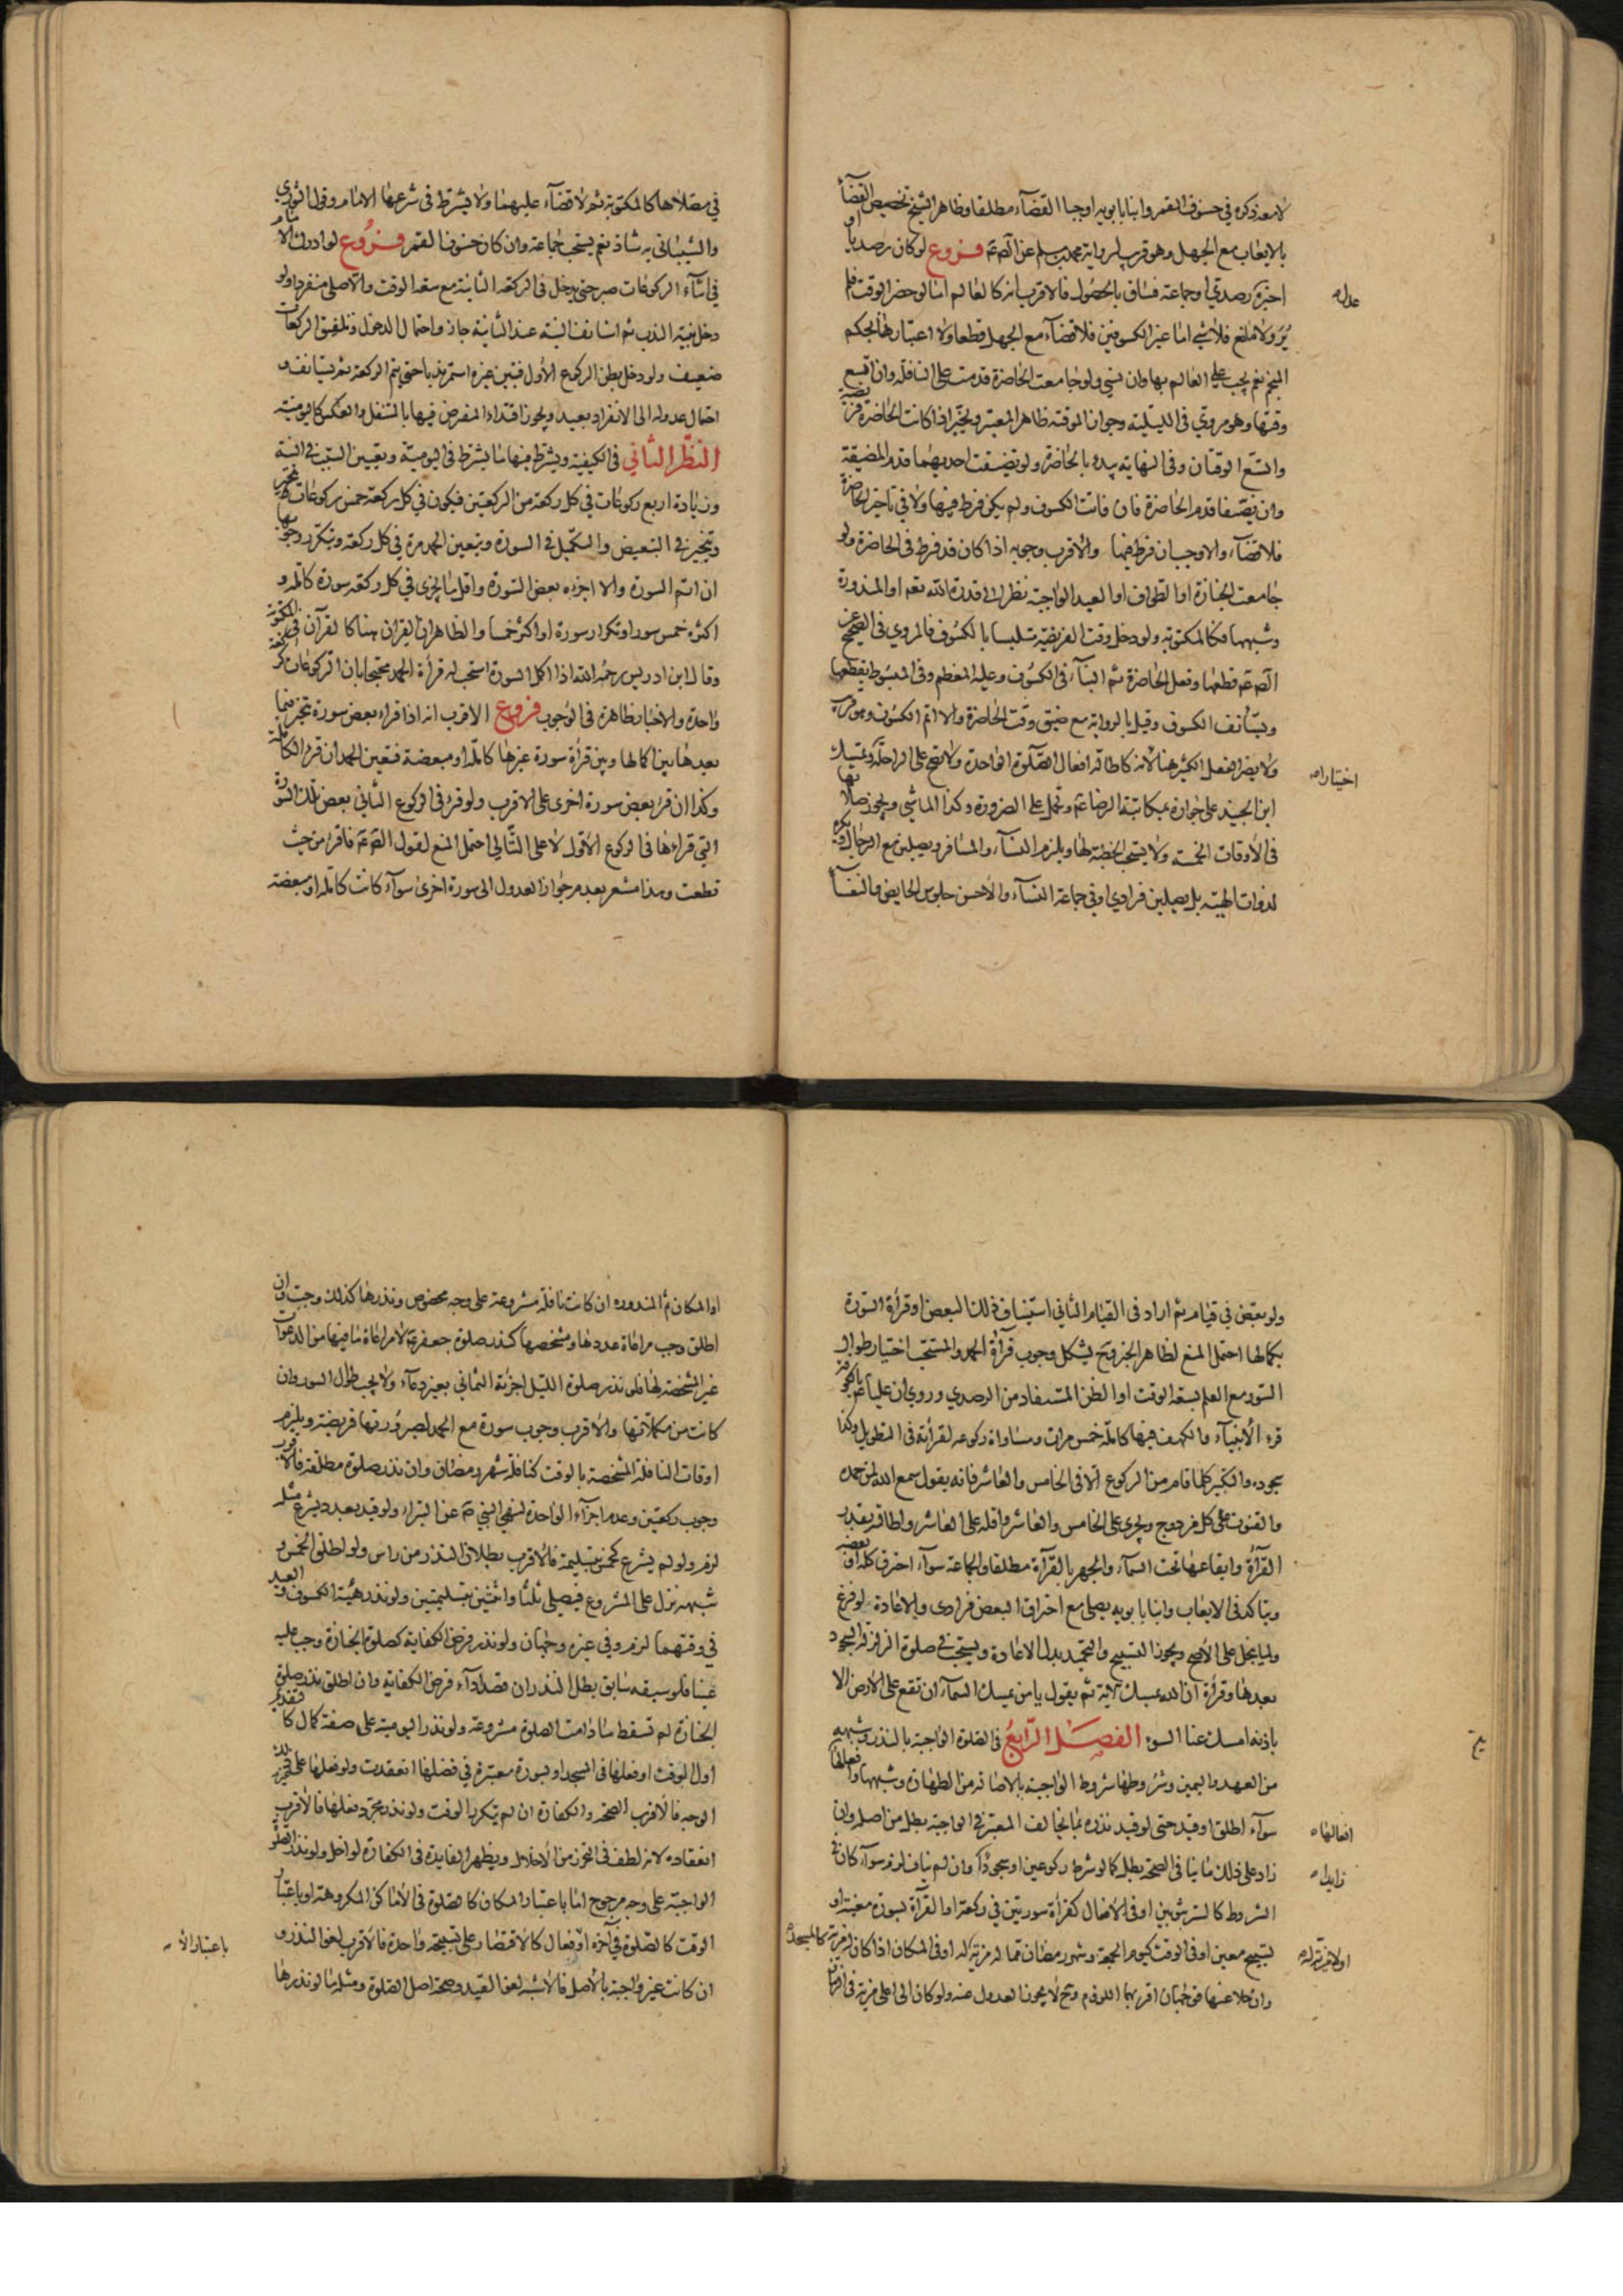 لا معه ذكره في خسوف القمر وابنا بابويه اوجبا القضاء مطلقا وظاهر الشيخ تخصيص القضاء
بالايعاب مع الجهل وهو قريب لرواية محمد بن مسلم عن الصّ عم فروع لو كان رصديا او
اخبره رصدي او جماعة فساق بالحصول فالاقرب انه كالعالم اما لو حضر الوقت فلم
عدل
ير ولا مانع فلا شي اما غير الكسوفين فلا قضاء مع الجهل قطعا ولا اعتبار هنا بحكم
المنجم نعم يجب على العالم بها وان نسي ولو جامعت الحاضرة قدمت على النافلة وان اتسع
وقتها وهو مروي في الليلية وجواز الموقتة ظاهر المعتبر ويتخير اذا كانت الحاضرة فريضة
واتسع الوقتان وفي النهاية يبدء بالحاضرة ولو تضيقت احديهما قدم المضيقة
وان تضيقا قدم الحاضرة فان فاتت الكسوف ولم يكن فرط فيها ولا في تاخير الحاضرة
فلا قضاء والا وجب ان فرط فيها والاقرب وجوبه اذا كان قد فرط في الحاضرة ولو
جامعت الجنازة او الطواف او العيد الواجبة نظر الى قدرة الله تعم او المنذورة
وشبهها فكالمكتوبة ولو دخل وقت الفريضة متلبسا بالكسوف فالمروي في الصحيح عن
الصّ عم قطعها وفعل الحاضرة ثم البناء في الكسوف وعليه المعظم وفي المبسوط يقطعها
ويستأنف الكسوف وقيل بالرواية مع ضيق وقت الحاضرة والا اتم الكسوف وهو قريب
ولا يضر الفعل الكثير هنا لانه كاطالة افعال الصلوة الواحدة ولا تصح على الراحلة وتمسك
اختيارا
ابن الجنيد على جوازه بمكاتبة الرضا عم وتحمل على الضرورة وكذا الماشي ويجوز صلاتها
في الاوقات الخمسة ولا يستحب الخطبة لها ويلزم النساء والمسافر ويصلين مع الرجال ويكره
لذوات الهيئة بل يصلين فرادي او في جماعة النساء والاحسن جلوس الحايض والنفساء
في مصلاها كالمكتوبة ثم لا قضاء عليهما ولا يشترط في شرعها الامام وقول الثوري
والشيباني به شاذ نعم يستحب جماعة وان كان خسوف القمر فروع لو ادرك الامام
في اثناء الركوعات صبر حتى يدخل في الركعة الثانية مع سعة الوقت والا صلى منفردا ولو
دخل بنية الندب ثم استانف النية عند الثانية جاز واحتمال الدخول وتلفيق الركعات
ضعيف ولو دخل بظن الركوع الاول فتبين غيره استمر ندبا حتى يتم الركعة ثم يستانف و
احتمال عدوله الى الانفراد بعيد ويجوز اقتداء المفترض فيها بالمتنفل والعكس كاليومية
النظر الثاني في الكيفية ويشترط فيها ما يشترط في اليومية وتعيين السبب في النية
وزيادة اربع ركوعات في كل ركعة من الركعتين فيكون في كل ركعة خمس ركوعات
ويتخير في التبعيض والتكميل في السورة ويتعين الحمد مرة في كل ركعة ويتكرر وجوبها
ان اتم السورة والا اجزءه بعض السورة واقل ما يجزي في كل ركعة سورة كاملة و
اكثره خمس سور او تكرار سورة او اكثر خمسا والظاهر ان القران هنا كالقرآن في المكتوبة
وقال ابن ادريس رحمه الله اذا اكمل السورة استحب له قراءة الحمد محتجا بان الركوعات كركعة
واحدة والاخبار ظاهرة في الوجوب فروع الاقرب انه اذا قراء بعض سورة تخير فيما
بعدها بين اكمالها وبين قراءة سورة غيرها كاملة او مبعضة فتعين الحمد ان قرء الكاملة
وكذا ان قرء بعض سورة اخرى على الاقرب ولو قرء في الركوع الثاني بعض تلك السورة
التي قراءها في الركوع الاول لا على التوالي احتمل المنع لقول الصّ عم فاقرء من حيث
قطعت وهذا مشعر بعدم جواز العدول الى سورة اخرى سواء كانت كاملة او مبعضة
ولو بعض في قيام ثم اراد في القيام الثاني استيناف ذلك البعض او قراءة السورة
بكمالها احتمل المنع لظاهر الخبر وح يشكل وجوب قراءة الحمد والمستحب اختيار طوال
السور مع العلم بسعة الوقت او الظن المستفاد من الرصدي وروي ان عليا عم بالكوفة
قرء الأنبياء والكهف فيها كاملة خمس مرات ومساواة ركوعه لقراءته في التطويل وكذا
سجوده والتكبير كلما قام من الركوع الا في الخامس والعاشر فانه يقول سمع الله لمن حمده
والقنوت على كل مزدوج ويجزي على الخامس والعاشر واقله على العاشر واطالته بقدر
القراءة وايقاعها تحت السماء والجهر بالقراءة مطلقا والجماعة سواء احترق كله او بعضه
ويتاكد في الايعاب وابنا بابويه يصلى مع احتراق البعض فرادى والاعادة لو فرغ
ولما ينجل على الاصح ويجوز التسبيح والتحميد بدل الاعادة ويستحب في صلوة الزلزلة السجود
بعدها وقراءة ان الله يمسك الآية ثم يقول يا من يمسك السماء ان تقع على الارض الا
باذنه امسك عنا السوء الفصل الرابع في الصلوة الواجبة بالنذر وشبهه
من العهد واليمين وشروطها شروط الواجبة بالاصالة من الطهارة وشبهها وافعالها
افعالها
سواء اطلق او قيد حتى لو قيد نذره بما يخالف المعتبر في الواجبة بطل من اصله وان
زاد على ذلك ما ينافي الصحة بطل كما لو شرط ركوعين او سجودا وان لم يناف لزم سواء كان في
زايدا
الشروط كالترشين او في الافعال كقراءة سورتين في ركعة او القراءة بسورة معينة او
تسبيح معين او في الوقت كيوم الجمعة وشهر رمضان مما له مزية له او في المكان اذا كان له مزية كالمسجد
او لا مزية له
وان خلا عنها فوجهان اقربهما اللزوم وح لا يجوز العدول عنه ولو كان الى اعلى مزية في الزمان
او المكان ثم المنذورة ان كانت نافلة مشروعة على وجه مخصوص ونذرها كذلك وجبت وان
اطلق وجب مراعاة عددها ومشخصها كنذر صلوة جعفر عم لا مراعاة ما فيها من الدعوات
غير المشخصة لها فلو نذر صلوة الليل اجزئه الثماني بغير دعاء ولا يجب طوال السور وان
كانت من مكملاتها والاقرب وجوب سورة مع الحمد لصيرورتها فريضة ويلزم
اوقات النافلة المشخصة بالوقت كنافلة شهر رمضان وان نذر صلوة مطلقة فالاقرب
وجوب ركعتين وعدم اجزاء الواحدة لنهي النبي ص عن البتراء ولو قيد بعدد يشرع مثله
لزم ولو لم يشرع كخمس بتسليمة فالاقرب بطلان النذر من راس ولو اطلق الخمس و
شبهه نزل على المشروع فيصلي ثلثا واثنتين بتسليمتين ولو نذر هيئة الكسوف والعيد
في وقتهما لزم وفي غيره وجهان ولو نذر فرض الكفاية كصلوة الجنازة وجب عليه
عينا فلو سبقه سابق بطل النذر ان قصد اداء فرض الكفاية وان اطلق نذر صلوة
الجنازة لم تسقط ما دامت الصلوة مشروعة ولو نذر اليومية على صفة كمال كتقديم
اول الوقت او فعلها في المسجد او بسورة معتبرة في فضلها انعقدت ولو فعلها على غير ذلك
الوجه فالاقرب الصحة والكفارة ان لم يتكرر الوقت ولو نذر مجرد فعلها فالاقرب
انعقاده لانه لطف في التحرز من الاخلال ويظهر الفايدة في الكفارة لو اخل ولو نذر الصلوة
الواجبة على وجه مرجوح اما باعتبار المكان كالصلوة في الاماكن المكروهة او باعتبار
الوقت كالصلوة في آخره او فعال كالاقتصار على تسبيحة واحدة فالاقرب لغو النذر و
باعتبار الا
ان كانت غير واجبة بالاصل فالاشبه لغو القيد وصحة اصل الصلوة ومثله ما لو نذرها